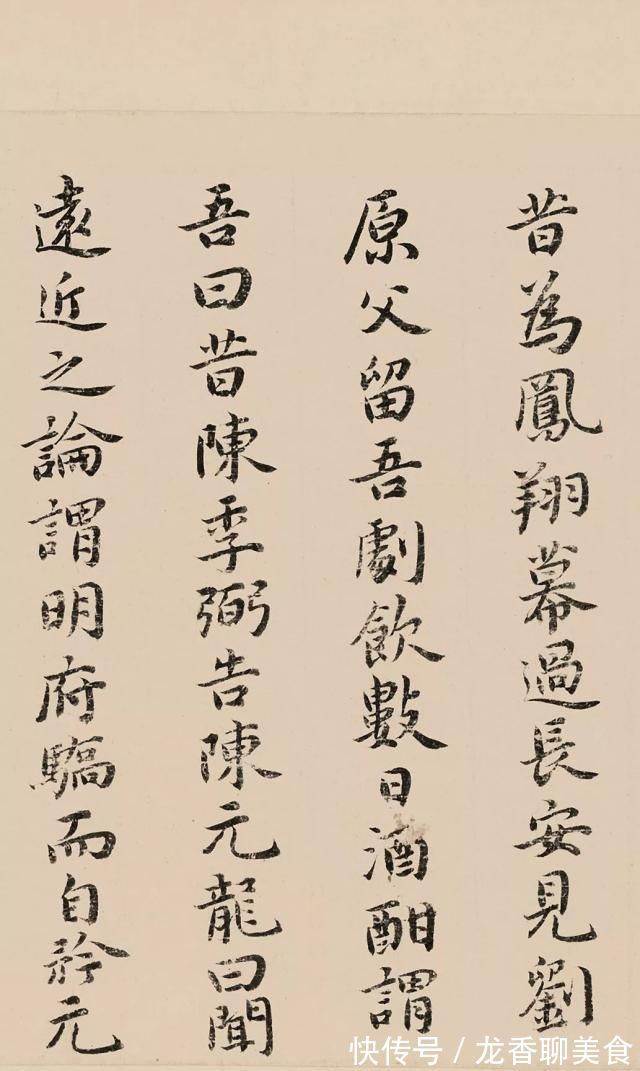 昔為鳳翔幕過長安見劉
原父留吾劇飲數日酒酣謂
吾曰昔陳季弼告陳元龍曰聞
遠近之論謂明府驕而自矜元
快传号 / 龙香聊美食